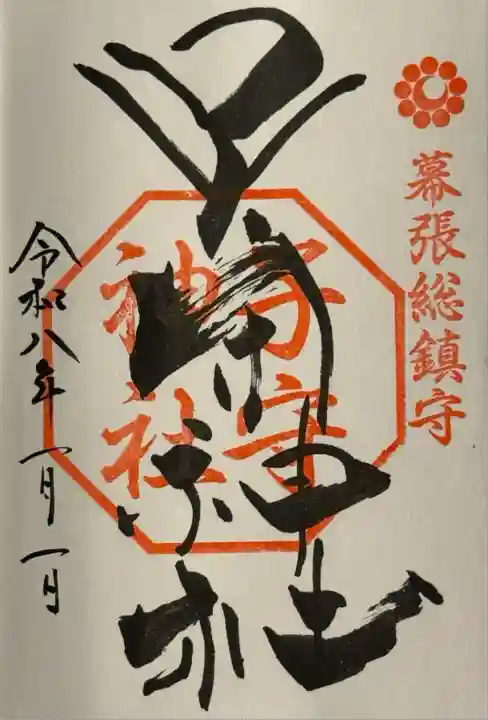 幕張総鎮守
子守神社
子守
神社
令和八年 一月一日